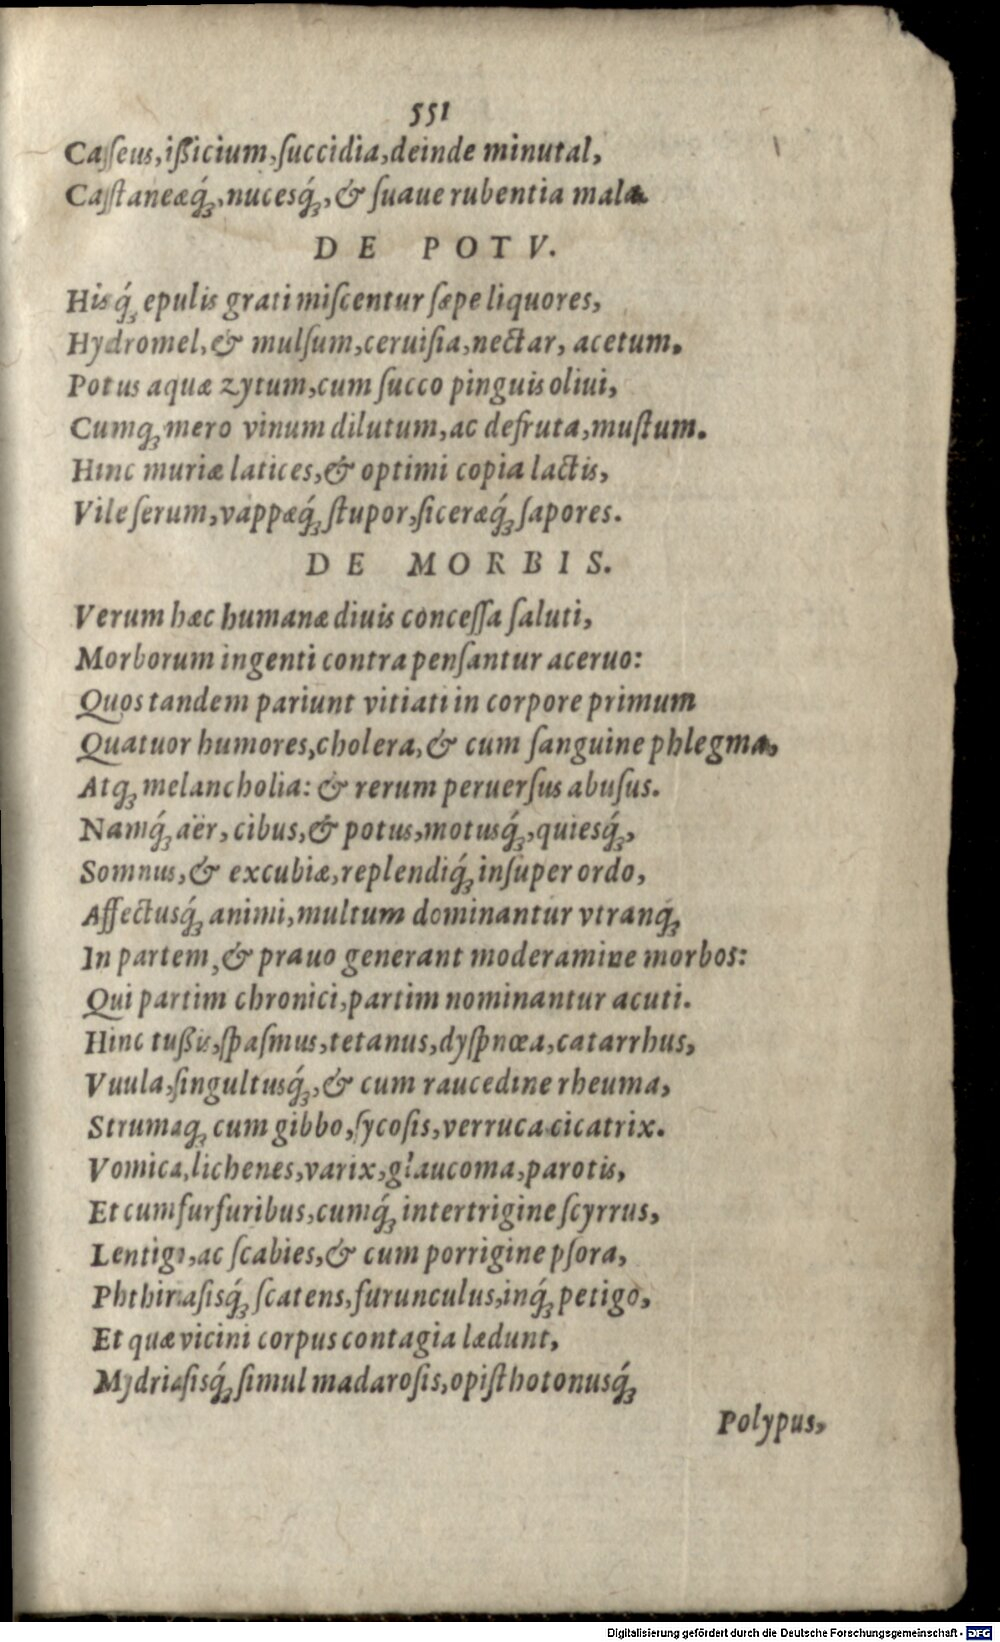 551
Caſſeus, ißicium, ſuccidia, deinde minutal,
Caſtaneæq́ꝫ, nucesq́ꝫ, & ſuaue rubentia mala.
DE POTV.
Hisq́ꝫ epulis grati miſcentur ſæpe liquores,
Hydromel, & mulſum, ceruiſia, nectar, acetum.
Potus aquæ zytum, cum ſucco pinguis oliui,
Cumqꝫ mero vinum dilutum, ac defruta, muſtum.
Hinc muriæ latices, & optimi copia lactis,
Vile ſerum, vappæq́ꝫ ſtupor, ſiceræq́ꝫ ſapores.
DE MORBIS.
Verum hæc humanæ diuis conceſſa ſaluti,
Morborum ingenti contra penſantur aceruo:
Quos tandem pariunt vitiati in corpore primum
Quatuor humores, cholera, & cum ſanguine phlegma,
Atqꝫ melancholia: & rerum peruerſus abuſus.
Namq́ꝫ aër, cibus, & potus, motusq́ꝫ, quiesq́ꝫ,
Somnus, & excubiæ, replendiq́ꝫ inſuper ordo,
Affectusq́ꝫ animi, multum dominantur vtranq́ꝫ
In partem, & prauo generant moderamine morbos:
Qui partim chronici, partim nominantur acuti.
Hinc tußis, ſpaſmus, tetanus, dyſpnœa, catarrhus,
Vuula, ſingultusq́ꝫ, & cum raucedine rheuma,
Strumaqꝫ cum gibbo, ſycoſis, verruca cicatrix.
Vomica, lichenes, varix, glaucoma, parotis,
Et cum furfuribus, cumq́ꝫ intertrigine ſcyrrus,
Lentigo, ac ſcabies, & cum porrigine pſora,
Phthiriaſisq́ꝫ ſcatens, furunculus, inq́ꝫ petigo,
Et quæ vicini corpus contagia lædunt,
Mydriaſisq́ꝫ ſimul madaroſis, opiſthotonusq́ꝫ
Polypus,
Digitalisierung gefördert durch die Deutsche Forschungsgemeinschaft - DFG